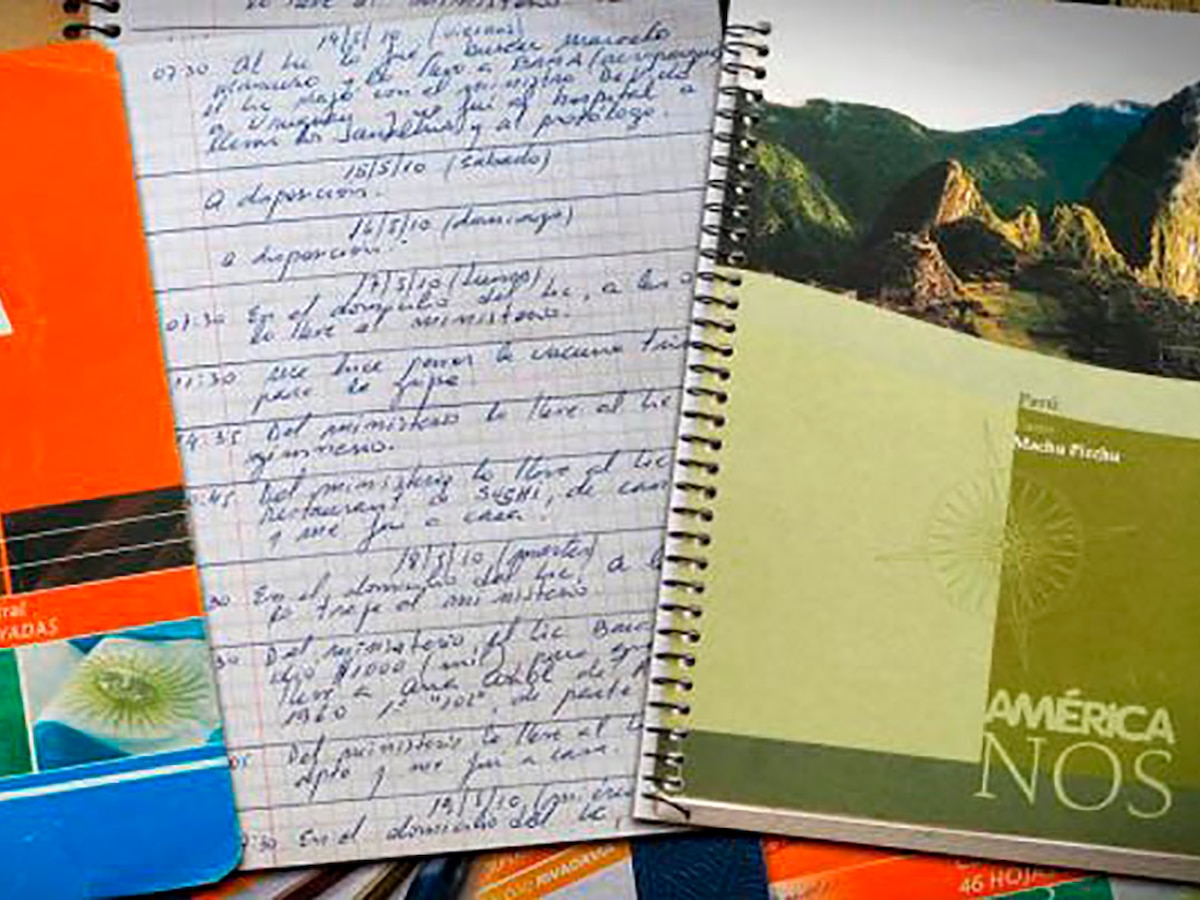 lo lleve al ministerio
14/5/10 (viernes)
07:30 Al Lic lo fui buscar marcelo
y lo llevo a BAMA (aeroparque)
el Lic viajo con el ministro De Vido
a Uruguay. Yo me fui al hospital a
y al proctólogo.
15/5/10 (sabado)
A disposicion.
16/5/10 (domingo)
a disposicion.
17/5/10 (lunes)
07:30 En el domicilio del Lic, a las
lo lleve al ministerio.
11:30 me hice poner la vacuna
para la gripe
14:35 Del ministerio lo lleve al Lic
gimnasio.
:45 Del ministerio lo lleve al Lic
restaurant de SUSHI, de
y me fui a casa.
18/5/10 (martes)
30 En el domicilio del Lic, a
lo traje al ministerio.
30 Del ministerio, el Lic
$1000 (mil) para que
lleve a
1960 1º "101", de parte
05 Del ministerio lo lleve al
dpto y me fui a casa.
19/5/10
:30 En el domicilio del Lic,
ral
YADAS
Perú
Machu Picchu
AMÉRICA
NOS
RIVADAVIA
46 HOJA